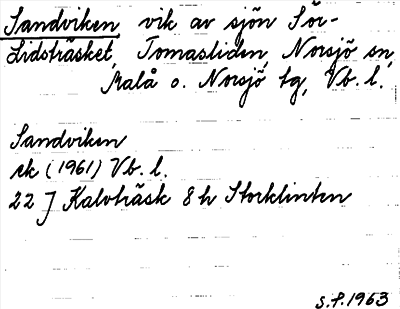 Sandviken, vik av sjön Sör-
Lidsträsket, Tomasliden, Norsjö sn,
Malå o. Norsjö tg, Vb. l.
Sandviken
rk (1961) Vb. l.
22 J Kalvträsk 8 h Storklinten
S.F. 1963